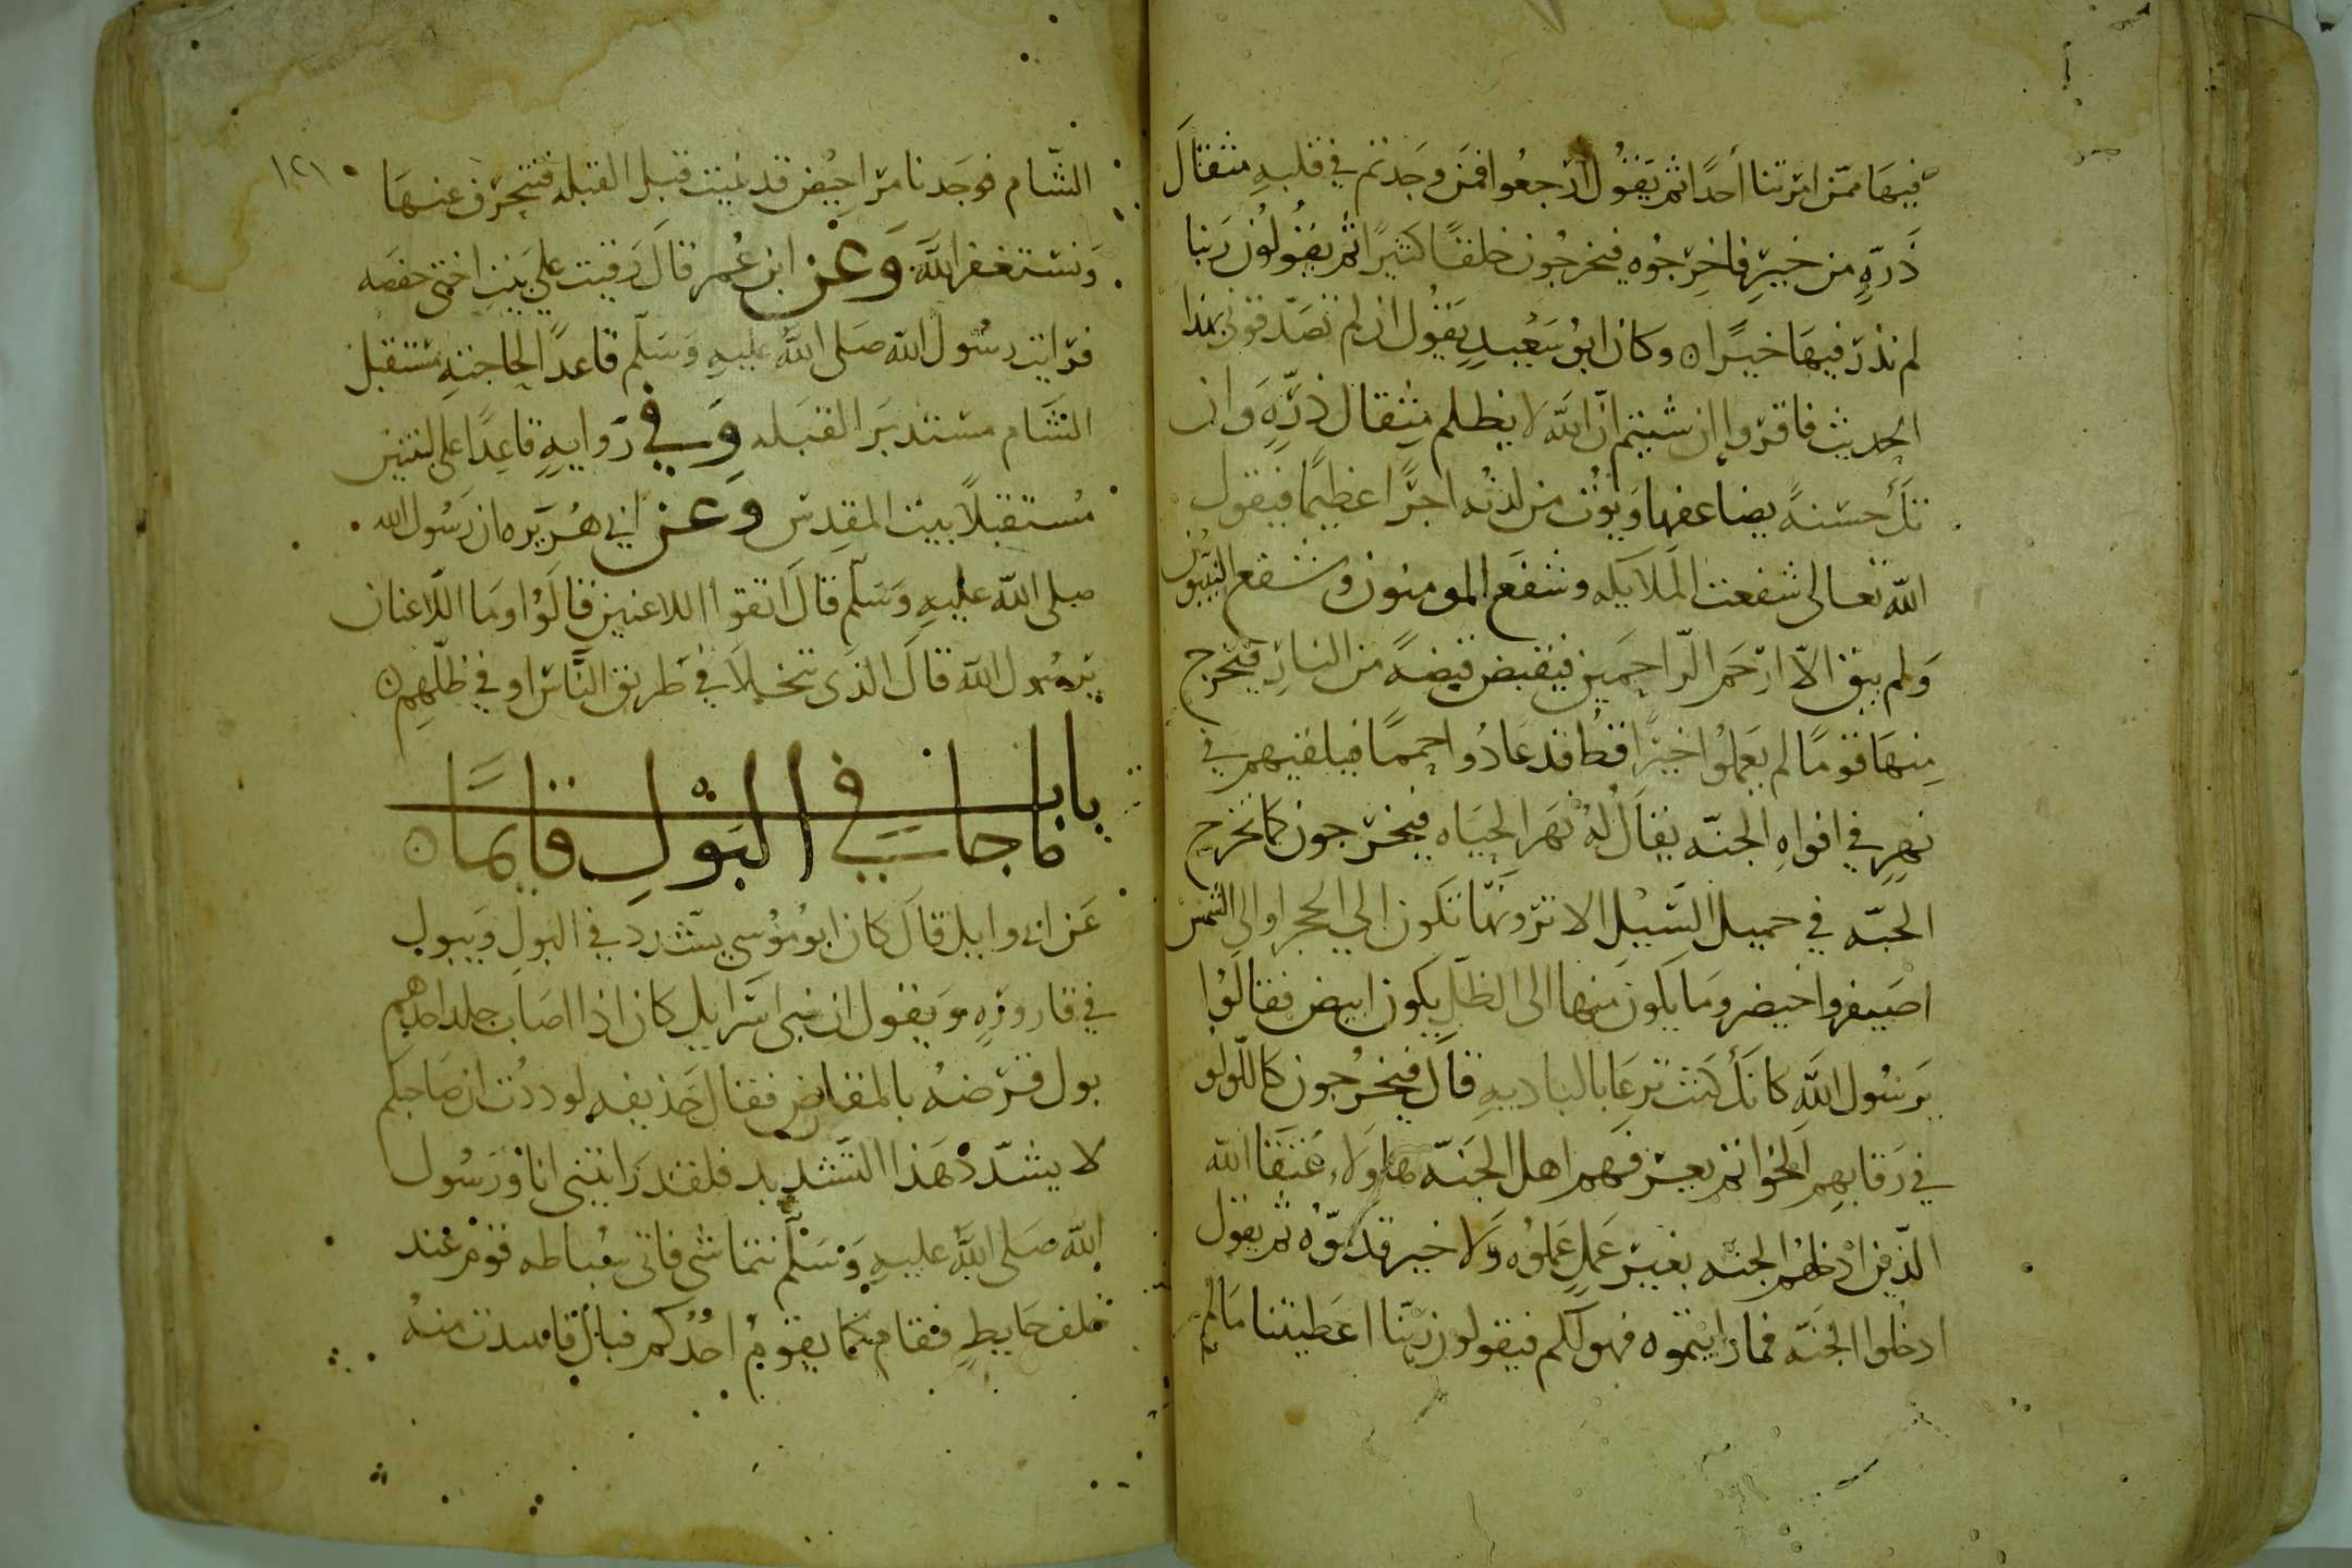 فيها ممن امرتنا أحدًا ثم يَقُول ارجعوا فمَن وجَدتم في قلبهِ مثقالَ
ذَرةٍ من خيرٍ فاخرِجوُه فيخرجُون خلقًا كثيرًا ثم يقُولُون رَبنا
لم نذر فيهَا خيرًا ه وكان ابوُ سَعِيدٍ يَقُول ان لم تصَدّقوني بهذا
الحديث فاقرؤا ان شيتم انّ اللّه لا يظلم مِثقال ذَرّةٍ وَان
تكُ حسَنةً يضاعفها وَيؤت من لدنه اجرًا عظيمًا فيقول
اللّه تعالى شفعت المَلايكه وشفَع المومنون وشفع النبيّون
وَلم يبق الاّ ارْحَم الرّاحمَين فيَقبض قبضةً من النارِ فيُخرج
مِنهَا قومًا لم يَعمَلوُا خيرًا قطُ قد عَادُوا حممًا فيلقيهم في
نهرٍ في افواهِ الجنّه يقَال لهُ نهَر الحيَاه فيخرجون كما تخرج
الحبّه في حميل السَّيْلِ الا ترونَهَا تكون الي الحجر او الي الشمس
اصَيفر واخيضر ومَا يكون منها الى الظلّ يكون ابيض فقالوُا
يَرسُول اللّه كانكَ كنت ترعَا بالباديهِ قالَ فيخرُجون كاللّولو
في رَقابهِم الخواتم يعرفهم اهل الجنَّه هاولاَء عَتقَا اللّه
الذين ادْخلهُم الجنه بغير عَملٍ عَملوُه وَلا خير قدّموُه ثم يقول
ادخلوا الجنَّه فما رايتموه فهو لكم فيقولون رَبّنا اعَطيتنا مَا لم
١٢١
الشَّام فوَجَدنا مَرَاحِيْض قد بُنيت قبل القبله فنَنحَرف عنهَا
وَنستغفر اللَّهَ وَعَنْ ابن عُمر قالَ رَقيت علي بَيْتِ اختى حفصَه
فرَايت رسُول اللّه صَلى اللّه عليهِ وَسَلّم قاعدًا لحاجتهِ مسْتقبل
الشَّام مستدبَر القبَله وَفِي رَوايهٍ قاعِدًا على لبنتين
مُستقبلاً بيت المقدِس وعن ابي هُرَيره ان رَسُول الله
صلى اللّه عليهِ وَسَلّم قالَ اتقوا اللاعنين قالَوُا وَما اللّاعنان
يَرسُول اللّه قالَ الذي يتخلاَ في طريق النَّاس او في ظلّهِم ه
باب
مَا جا في البَوْلِ قايمًا ه
عَن ابى وايل قالَ كان ابوُ موُسى يشدد في البَولِ وَيبول
في قارورَهٍ وَيقول ان بني اسرَايل كان اذا اصَابَ جلد احدهم
بول قرَضهُ بالمقاريض فقال حَذيفه لوددْت ان صَاحبكم
لا يشدّد هَذا التشديد فلقد رَايتني انا وَرَسُول
اللّه صَلى اللّه عليهِ وَسَلّم نتماشى فاتى سُباطه قوم
خلف حَايطٍ فقام كما يقومُ احدُكم فبال فانتبذت منهُ